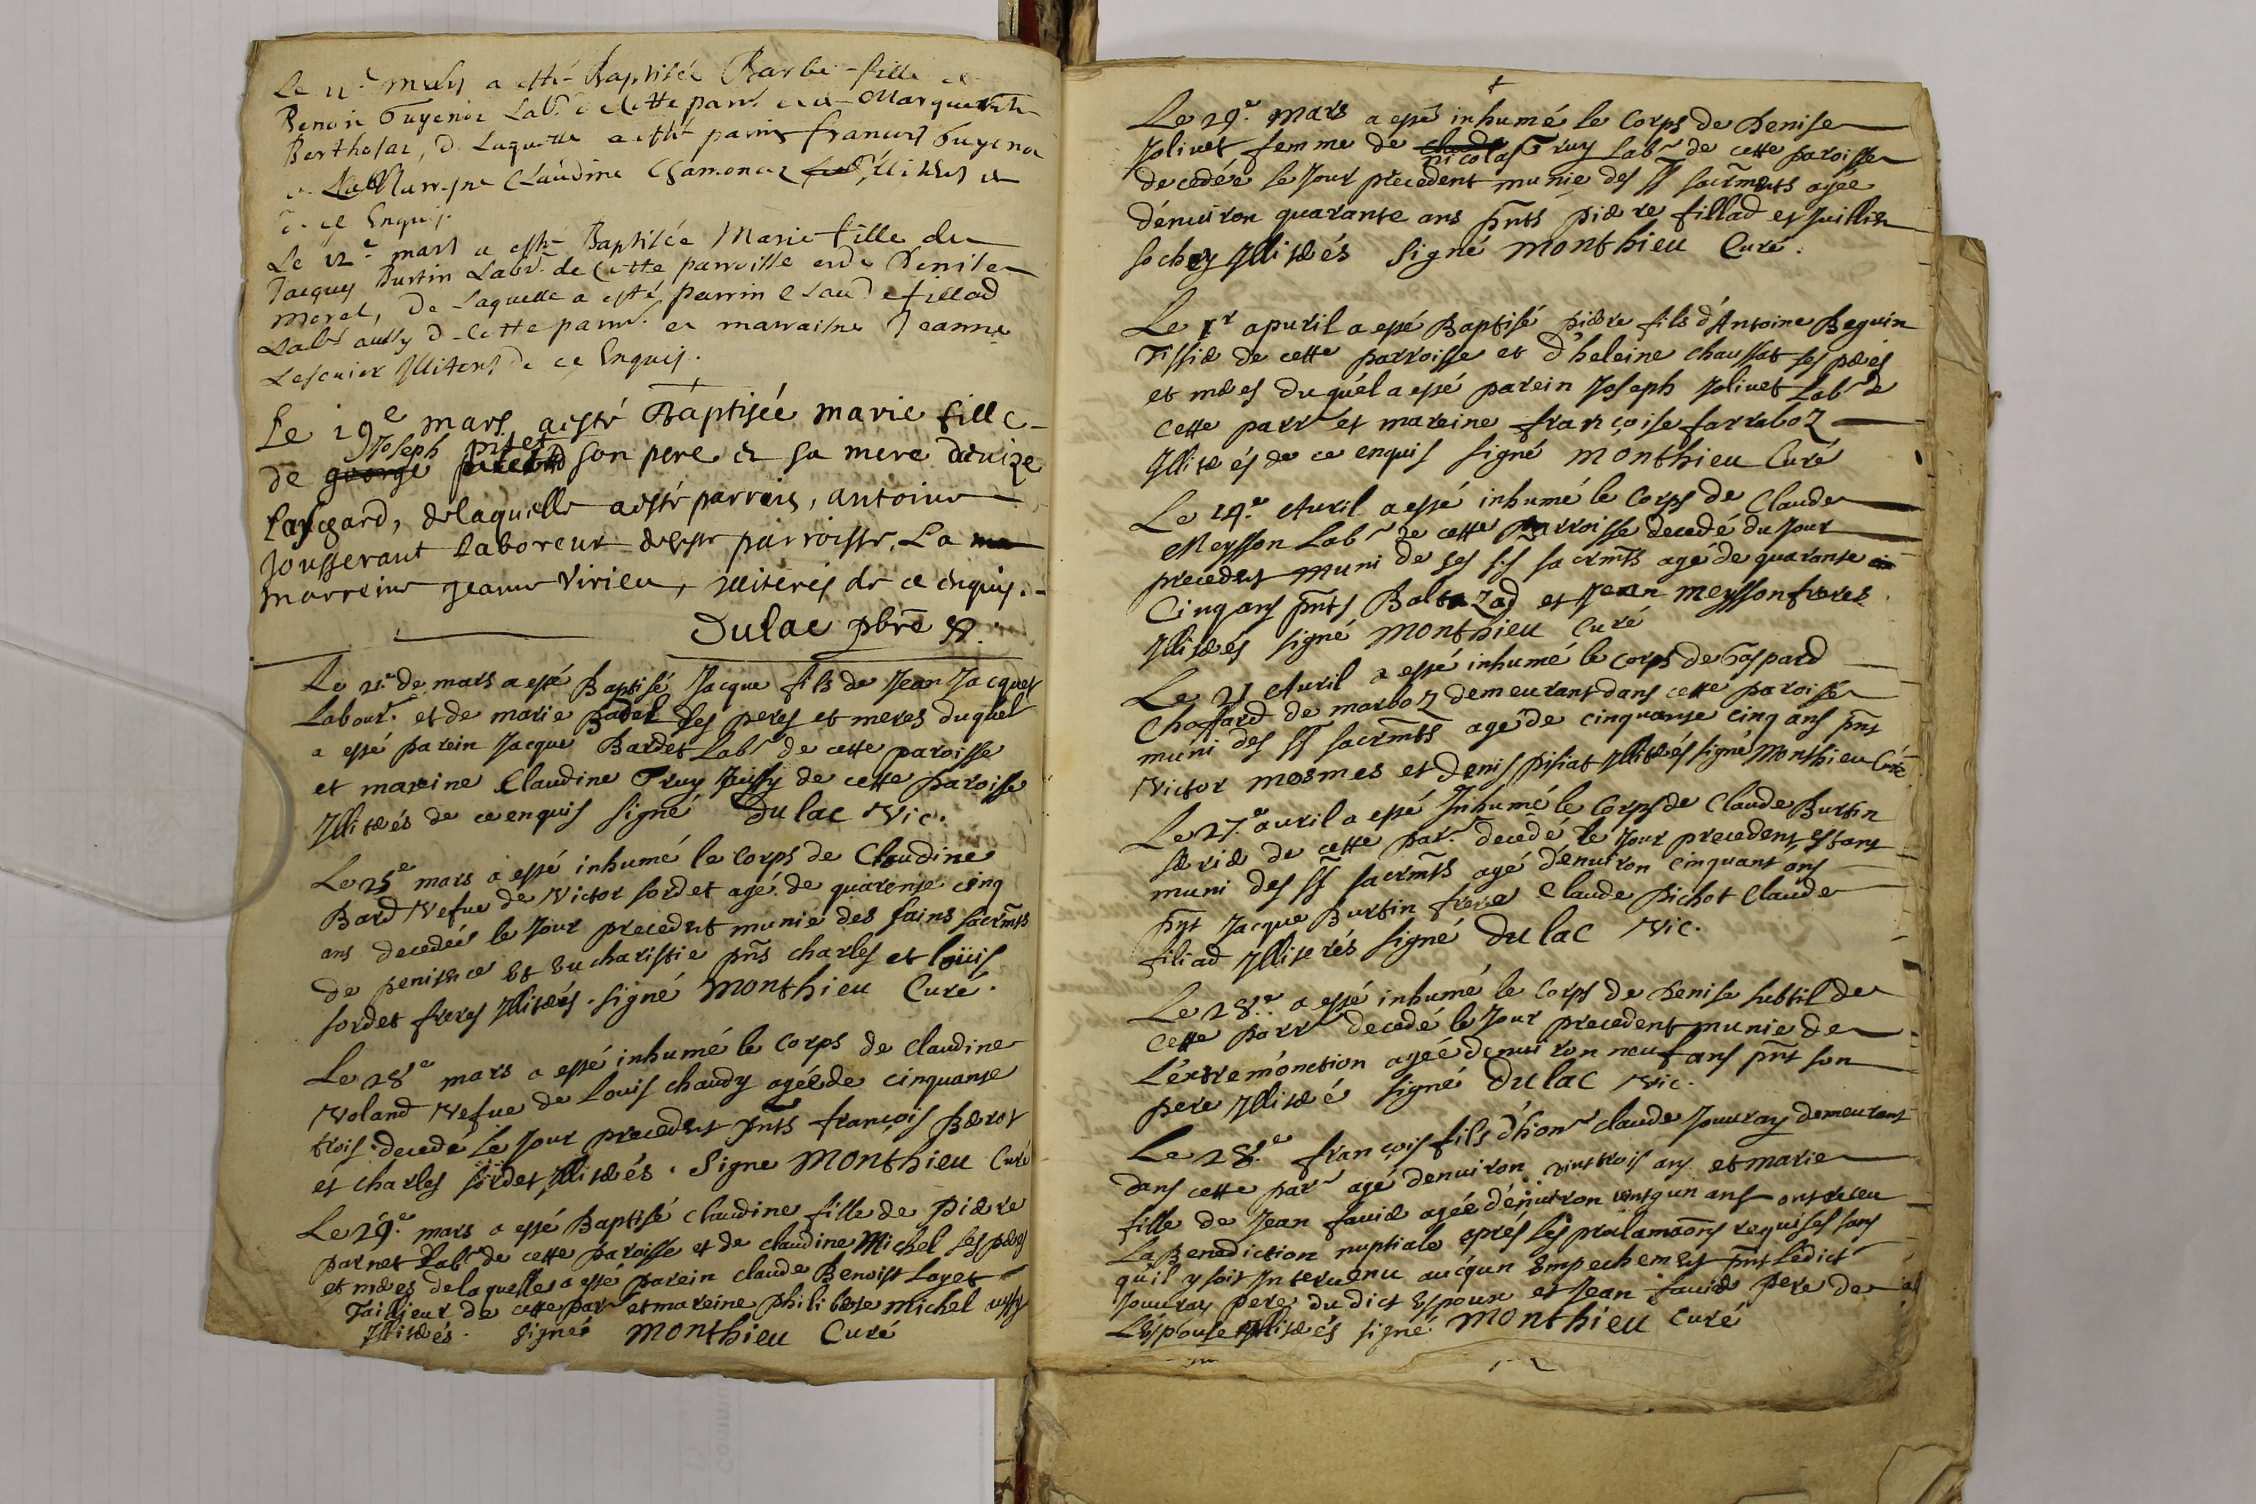 Le 11e mars a esté Baptisée Barbe fille de
Benoit Guyenoz Labr. de cette parr. et de Marguerite
Bertholat, de Laquelle a esté parrin francois Guyenoz
et Marraisne Claudine Chamonaz Illiteres
de ce Enquis.
Le 12e mars a esté Baptisée Marie fille de
Jacques Burtin Labr. de Cette parroisse et de Denise
Morel, De Laquelle a esté parrin Claude fillod
Labr aussy de Cette parr. et marraisne Jeanne
Illiteres de ce Enquis.
Le 19e mars a esté Baptisée marie fille
Joseph pitet
de george son pere et sa mere denize
delaquelle a esté parrein, antoine
Jousserant laboreur de cette parroisse, La
marreine jeanne virieu, illiterés de ce enquis.
Dulac pbre
Le 21e de mars a esté Baptisé Jacque fils de Jean Jacquet
Labour. et de marie Badel ses peres et meres duquel
a esté parein Jacque Bardet Labr de cette paroisse
et mareine Claudine Truy Aussy de cette paroisse
Illiterés de ce enquis signé Dulac Vic.
Le 25e mars a esté inhumé le Corps de Claudine
Bard Vefue de Victor sordet agé de quarente cinq
ans decedée le Jour precedent munie des sains sacrmts
de penitence Et Eucharistie pnts charles et loüis
sordet freres Illiterés. signé Monthieu Curé.
Le 28e mars a esté inhumé le Corps de claudine
Voland Vefue de Louis chaudy agée de cinquante
trois. decedé Le Jour precedent pnts françois perot
et charles sordet Illiterés. Signe Monthieu Curé
Le 29e mars a esté Baptisé claudine fille de Pierre
parnet Labr de cette paroisse et de claudine Michel ses peres
et meres delaquelle a esté parein claude Benoist Layet
Tailleur de cette parr et mareine philiberte michel aussy
Illiterés. signé Monthieu Curé
Le 29e mars a esté inhumé le Corps de Denise
Jolivet femme de claude
nicolas Truy Labr de cette paroisse
decedée le Jour precedent munie des SS sacrments agée
dénuiron quarante ans pnts pierre fillad et Juillien
sochay Illiterés signé Monthieu Curé.
Le 1r apuril a esté Baptisé pierre fils d'Antoine Beguin
Tissier de cette parroisse et d'heleine chaussat ses peres
et meres duquél a esté parein Joseph Jolivet Labr de
cette parr et mareine françoise farraboz
Illiterés de ce enquis signé Monthieu Curé
Le 14e Auril a esté inhumé le Corps de Claude
Meysson Labr de cette parroisse decedé du Jour
precedent muni de ses SS sacrmts agé de quarante
Cinq ans pnts Baltazad et Jean meysson freres
Illiterés signé Monthieu Curé
Le 21 Auril a esté inhumé le corps de Gaspard
Choffard de marboz demeurant dans cette paroisse
muni des SS sacrmts agé de cinquante cinq ans pnt
Victor mosmes et denis pisiat Illiterés signé Monthieu Curé
Le 27e auril a esté Inhumé le Corps de Claude Burtin
de cette par. decedé le Jour precedent estant
muni des SS sacrmts agé dénuiron cinquant ans
pnt Jacque Burtin frere Claude Pichot Claude
filiad Illiterés signé Dulac Vic.
Le 28e a esté inhumé le Corps de Denise subtil de
cette parr decedé le Jour precedent munie de
L'éxtremónction agée denuiron neuf ans pnt son
pere Illiteré signé Dulac Vic.
Le 28e françois fils d'honr claude Jouuray demeurant
dans cette parr agé denuiron vint trois ans et marie
fille de Jean fauier agée dénuiron vint q'un ans ont receu
La Benediction nuptiale aprés les proclamaons requises sans
qu'il y soit Interuenu aucqun Empechement pnt Ledict
Jouuray pere du dict Espoux et Jean fauier pere de
L'Espouse Illiterés signé Monthieu Curé